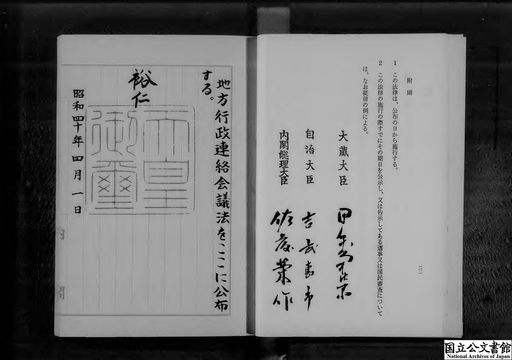 附則
1 この法律は、公布の日から施行する。
2 この法律の施行の際すでにその期日を公示し、又は告示してある選挙又は国民審査について
は、なお従前の例による。
大蔵大臣 田中角栄
自治大臣 吉武恵市
内閣総理大臣 佐藤榮作
地方行政連絡会議法をここに公布
する。
裕仁
天皇御璽
昭和四十年四月一日
国立公文書館
National Archives of Japan